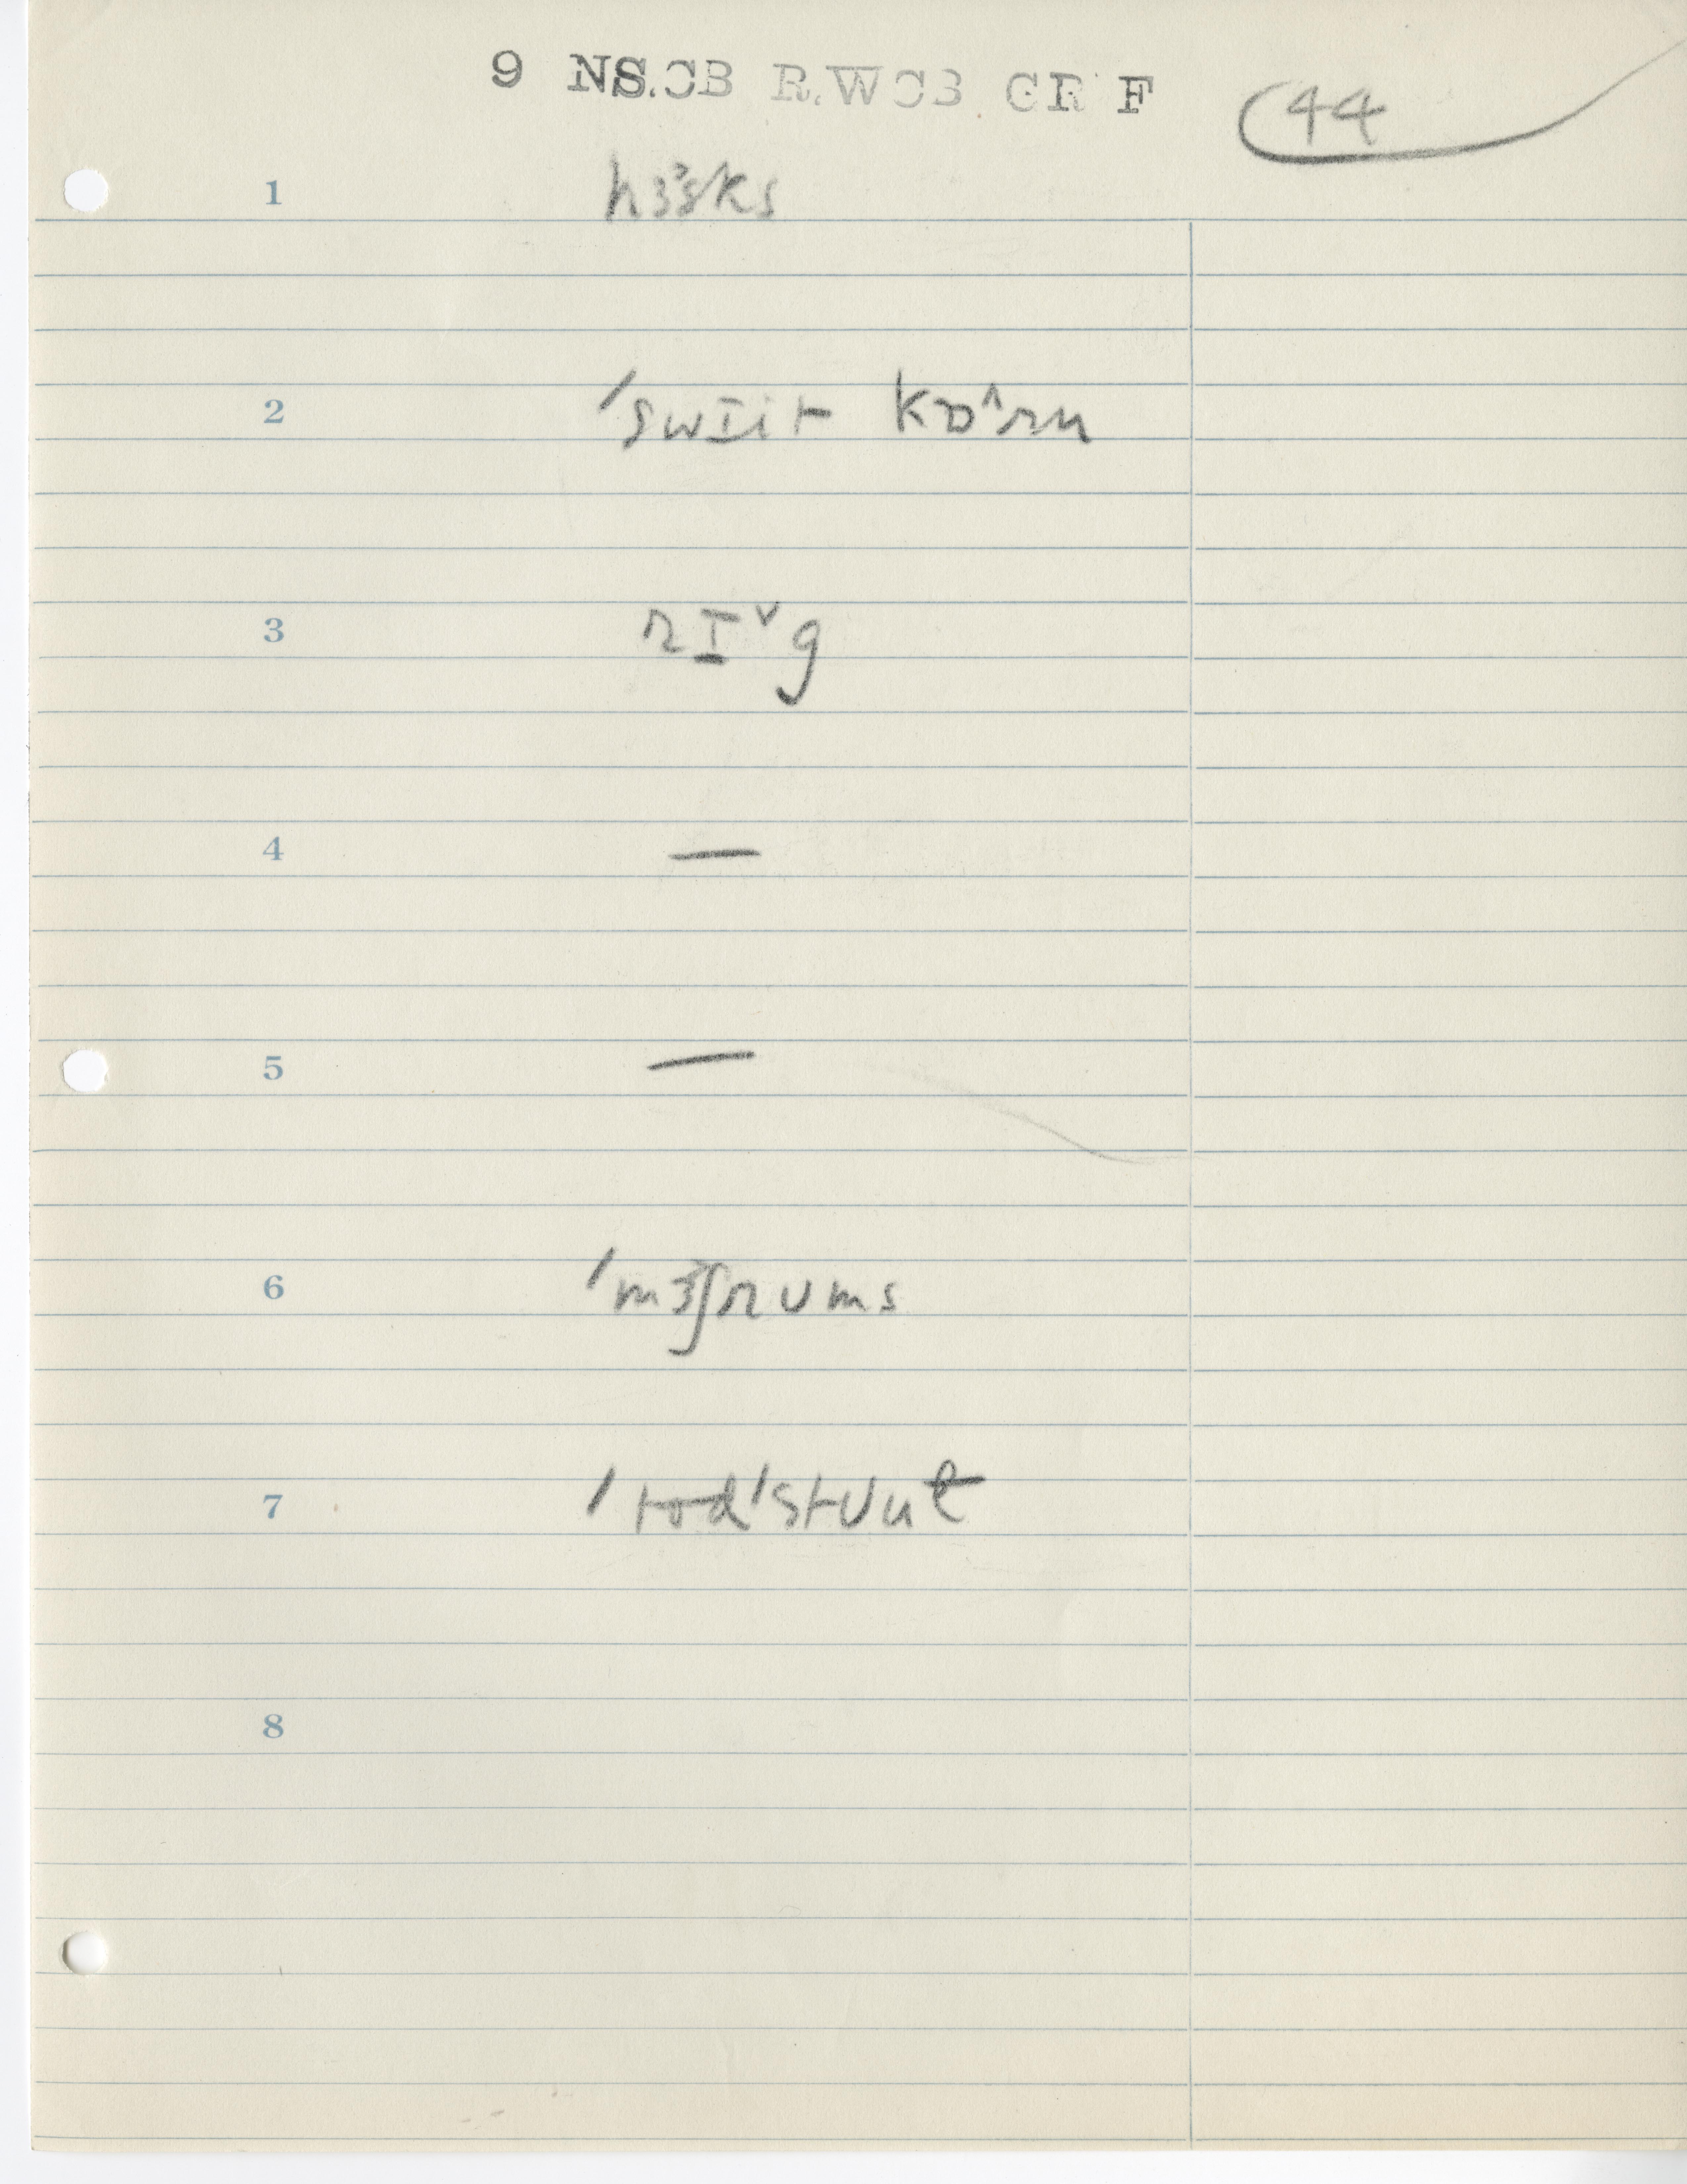 9 NS.CB R.WCB CR F
44
1 hɜᶾsks
2 ˈswɪit kɒ^rn
3 rɪˇg
4 —
5 —
6 ˈmɜᶾʃrʊms
7 ˈtodˈstʊut
8